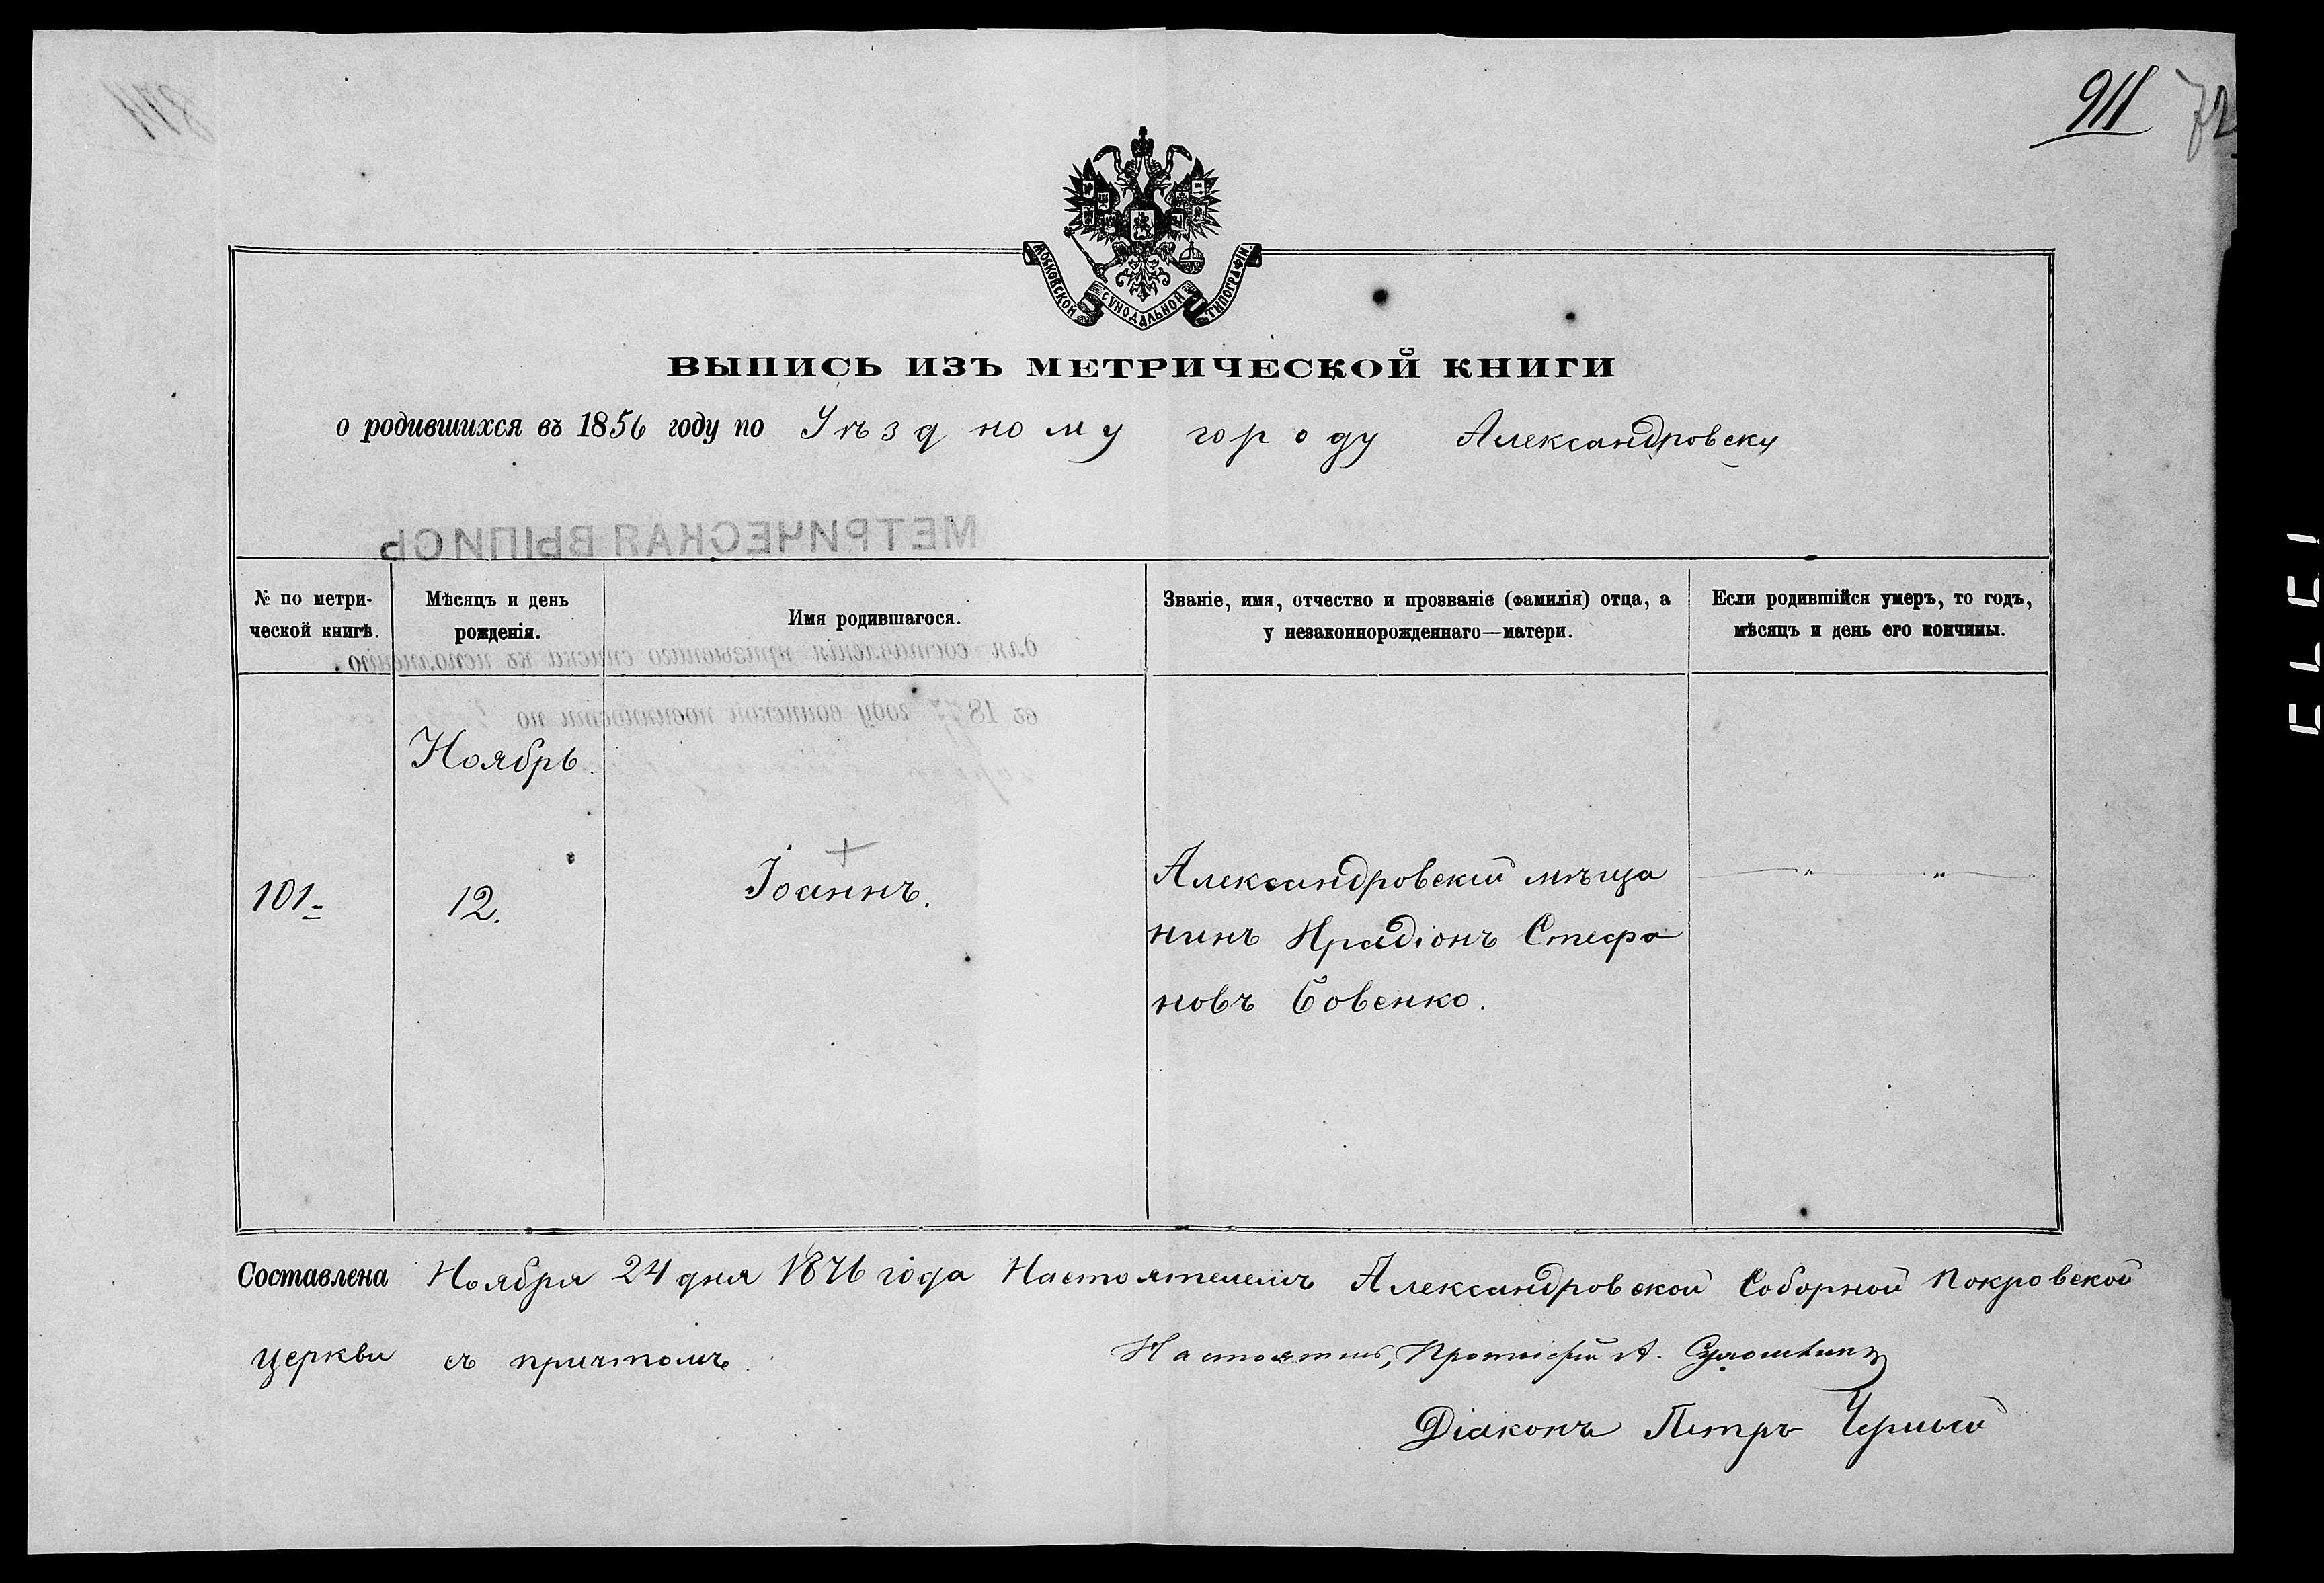 911 72
МОСКОВСКОЙ СУНОДАЛЬНОЙ ТИПОГРАФІИ.
ВЫПИСЬ ИЗЪ МЕТРИЧЕСКОЙ КНИГИ
о родившихся въ 1856 году по Уѣздному городу Александровску
МЕТРИЧЕСКАЯ ВЫПИСЬ
№ по метри-
ческой книгѣ.
Мѣсяцъ и день
рожденія.
Имя родившагося.
Званіе, имя, отчество и прозваніе (фамилія) отца, а
у незаконнорожденнаго—матери.
Если родившійся умеръ, то годъ,
мѣсяцъ и день его кончины.
для составленія призывнаго списка къ исполненію
въ 1877 году воинской повинности по
Ноябрь.
101
12.
Іоаннъ.
Александровскій мѣща
нинъ Ирадіонъ Стефа
новъ Бовенко.
Составлена Ноября 24 дня 1876 года Настоятелемъ Александровской Соборной Покровской
церкви съ причтомъ.
Настоятель, Протоіерей А.
Діаконъ Петръ Черный